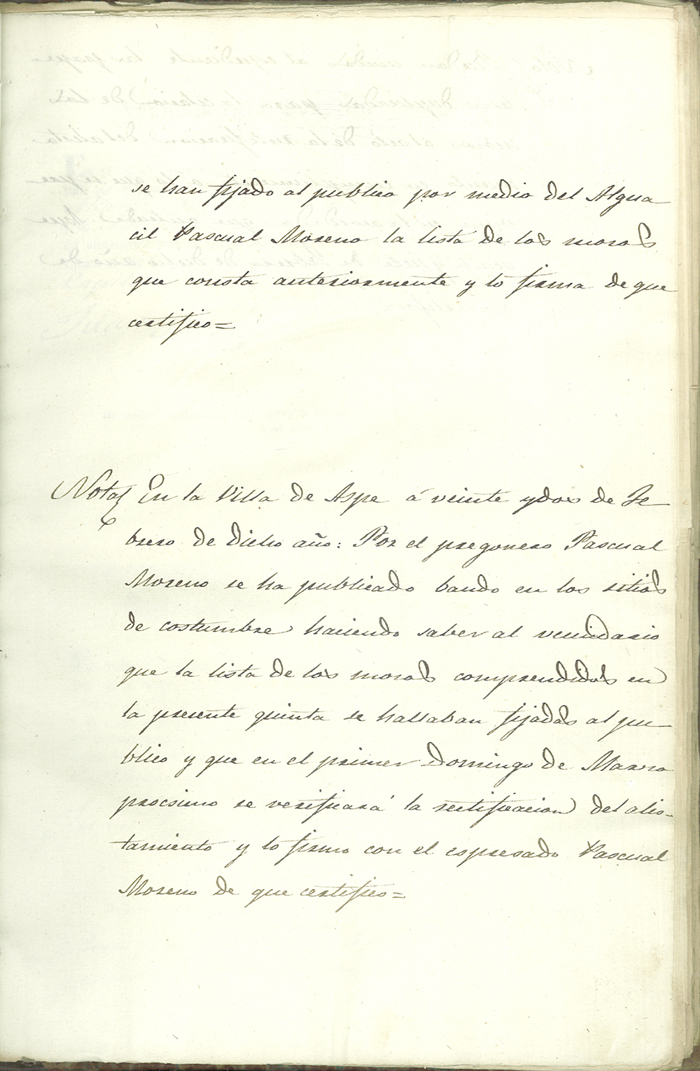 se han fijado al publico por medio del Algua
cil Pascual Moreno la lista de los mozos
que consta anteriormente y lo firma de que
certifico=
Nota En la Villa de Aspe á veinte y dos de Fe-
brero de dicho año: Por el pregonero Pascual
Moreno se ha publicado bando en los sitios
de costumbre haciendo saber al vecindario
que la lista de los mozos comprendidos en
la presente quinta se hallaban fijadas al pu-
blico y que en el primer Domingo de Marzo
procsimo se verificará la rectificacion del alis-
tamiento y lo firmo con el espresado Pascual
Moreno de que certifico=